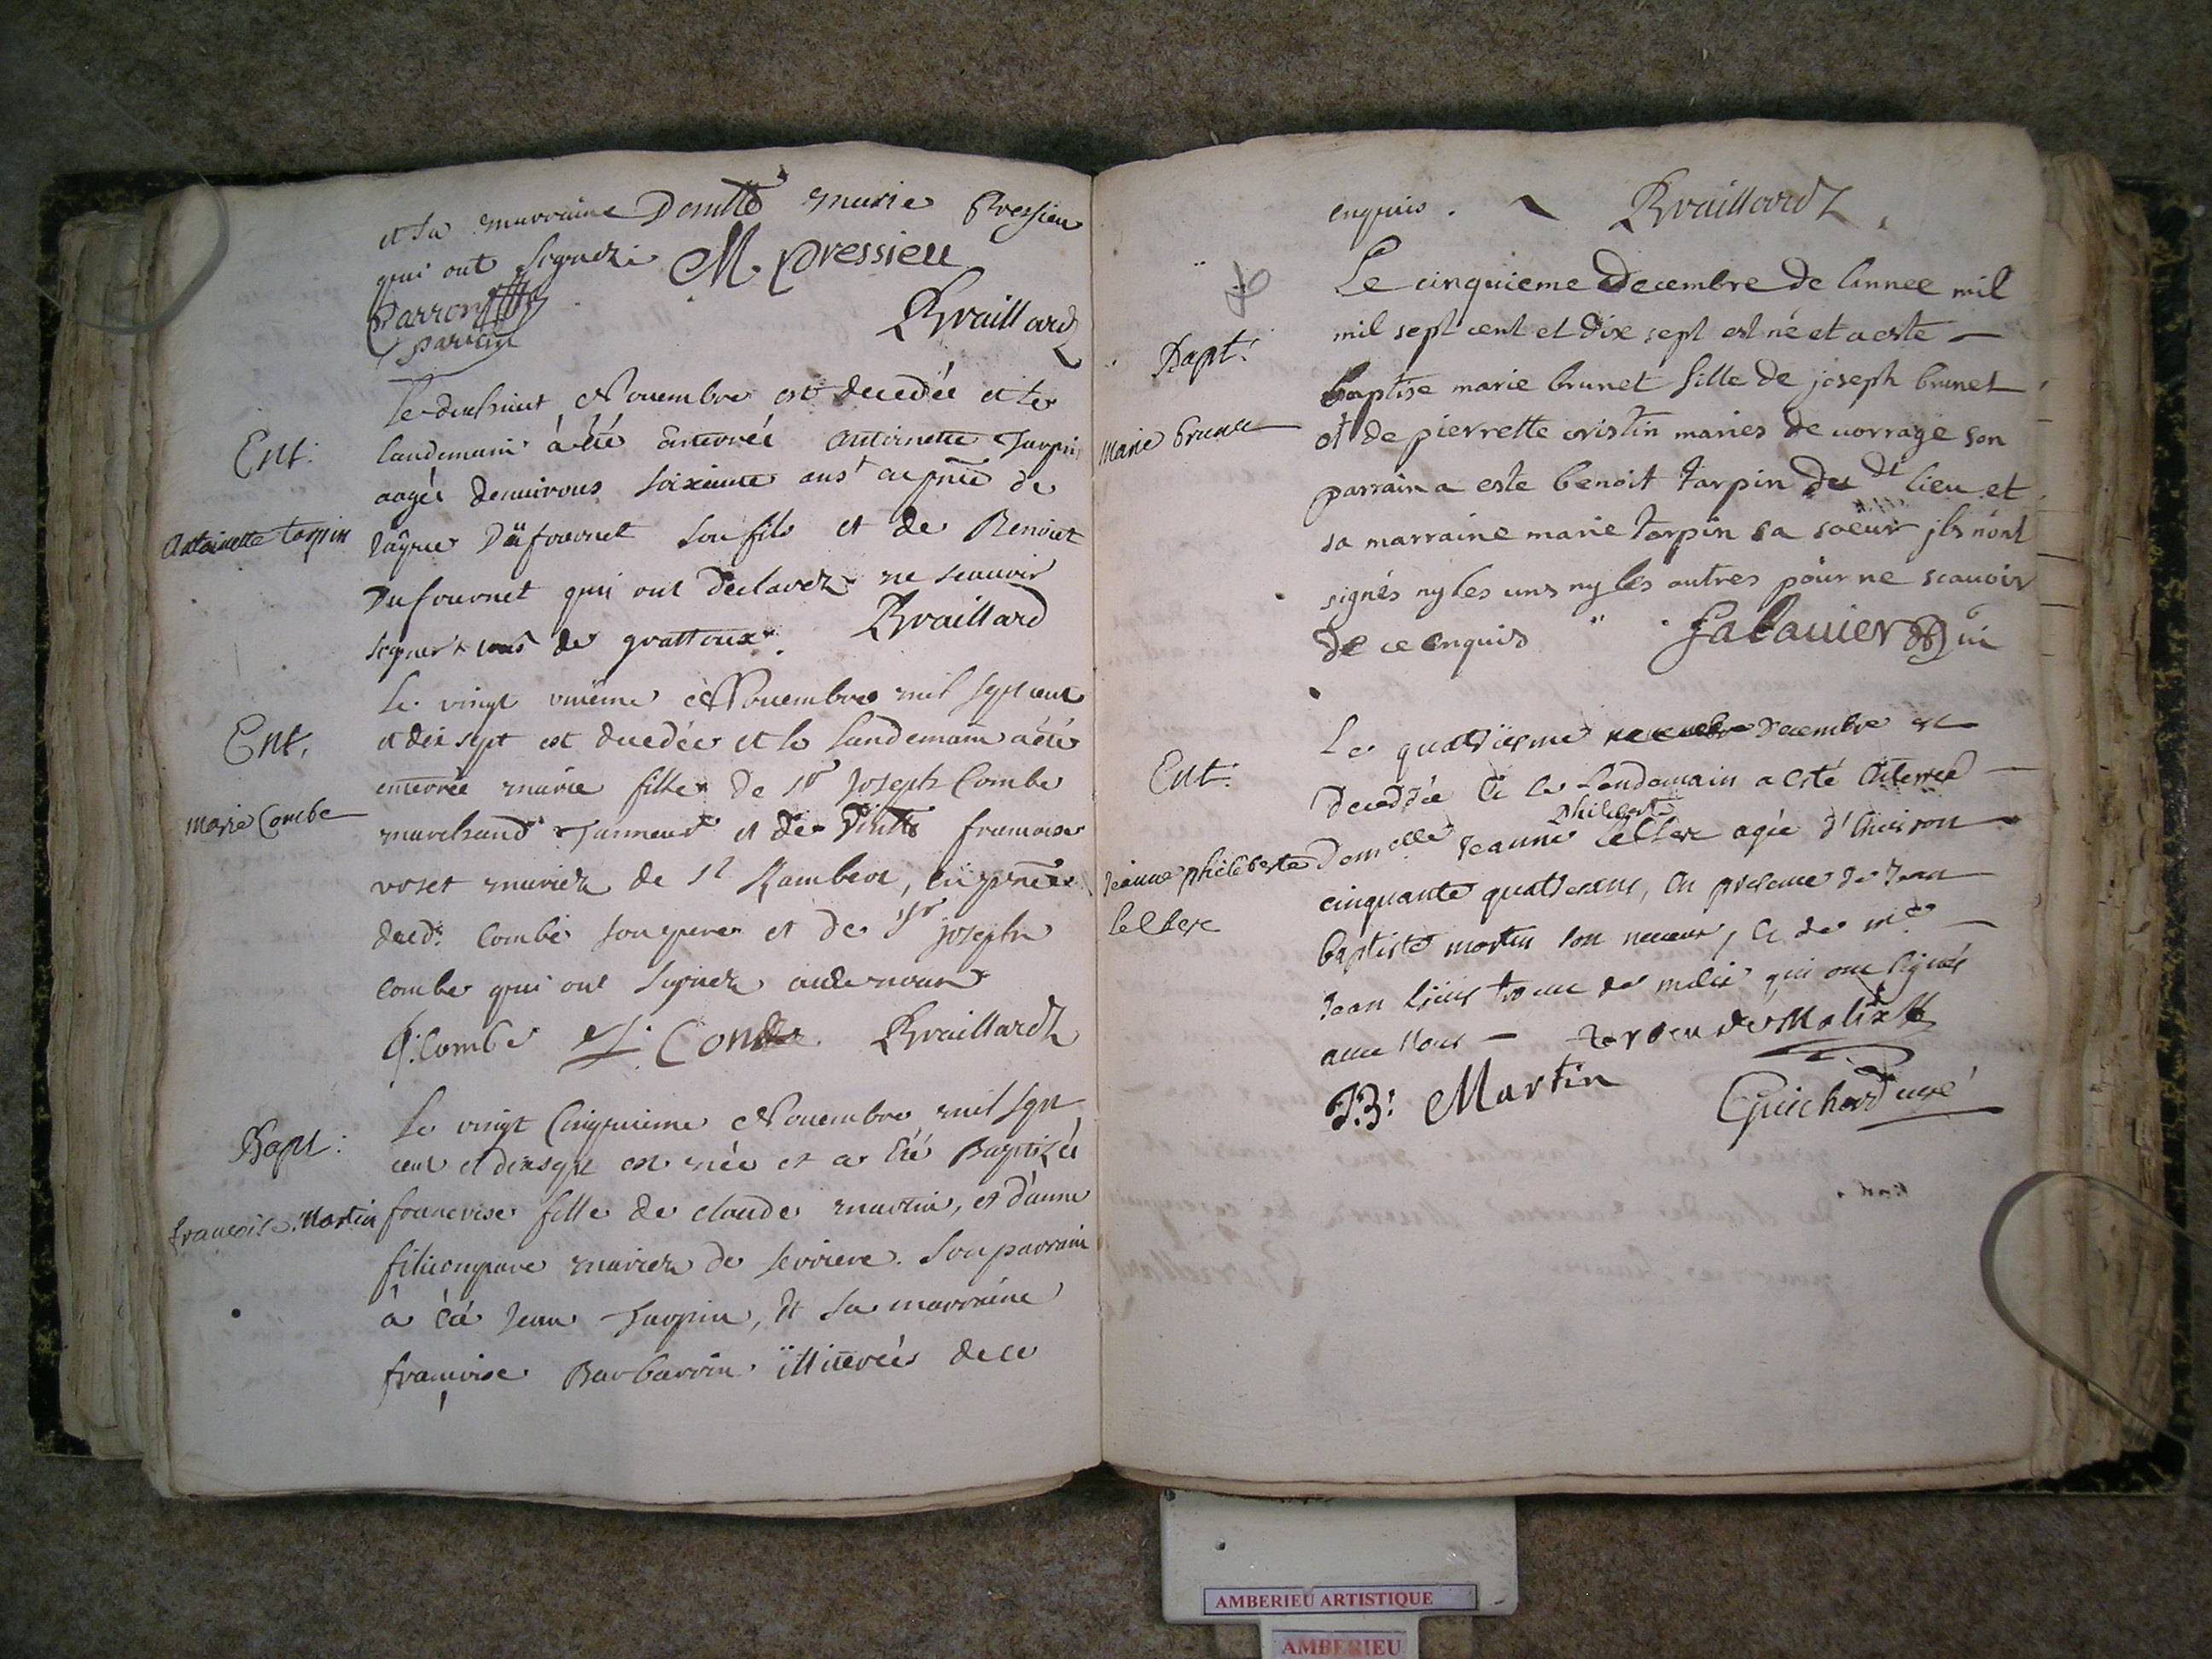 et sa marraine Demlle marie Pressieu
qui ont signez M pressieu
Parron
parrain
Bvaillard
Le dixhuict Nouembre est decedée et le
Ent. landemain à été enterrée antoinette Tarpin
aagée denuirons soixante ans
Antoinette tarpin
Dufournet son fils et de Benoict
Dufournet qui ont declarez ne scauoir
signer de grattoux. Bvaillard
Le vingt unieme Nouembre mil sept cent
Ent. et dix sept est decedée et le landemain à été
enterrée marie fille de Sr Joseph Combe
marie Combe
marchand Tanneur et de francoise
mariez de St Rambert, en pnce
dud. Combe son pere et de Sr joseph
Combe qui ont signez auec nous
J. Combe J. Combe Bvaillard
Le vingt Cinquieme Nouembre mil sept
Bapt. cent et dixsept est née et a été Baptizée
francoise Martin
francoise fille de claude martin, et d'anne
mariez de serriere. Son parrain
à été Jean Tarpin, et sa marraine
françoise Barbarin illiterés de ce
enquis. Bvaillard
Le cinquieme Decembre de lannee mil
mil sept cent et dix sept est né et a este
Bapt.
baptise marie brunet fille de joseph brunet
marie brunet
et de pierrette cristin maries de uorrage son
parrain a este benoit tarpin du dt lieu et
sa marraine marie tarpin sa soeur jls n'ont
signés ny les uns ny les autres pour ne scauoir
de ce enquis falauier
Le quatrieme Decembre est
Ent.
decedée et le Landemain a esté enterrée
philiberte
Demelle Jeanne leClerc agée d'enuiron
jeanne philiberte
leClerc
cinquante quatre ans, en presence de Jean
baptiste martin son neueu, et de
Jean trocu de malix qui ont signés
auec nous trocu de Malix
J.B. Martin Guichard curé
AMBERIEU ARTISTIQUE
AMBERIEU